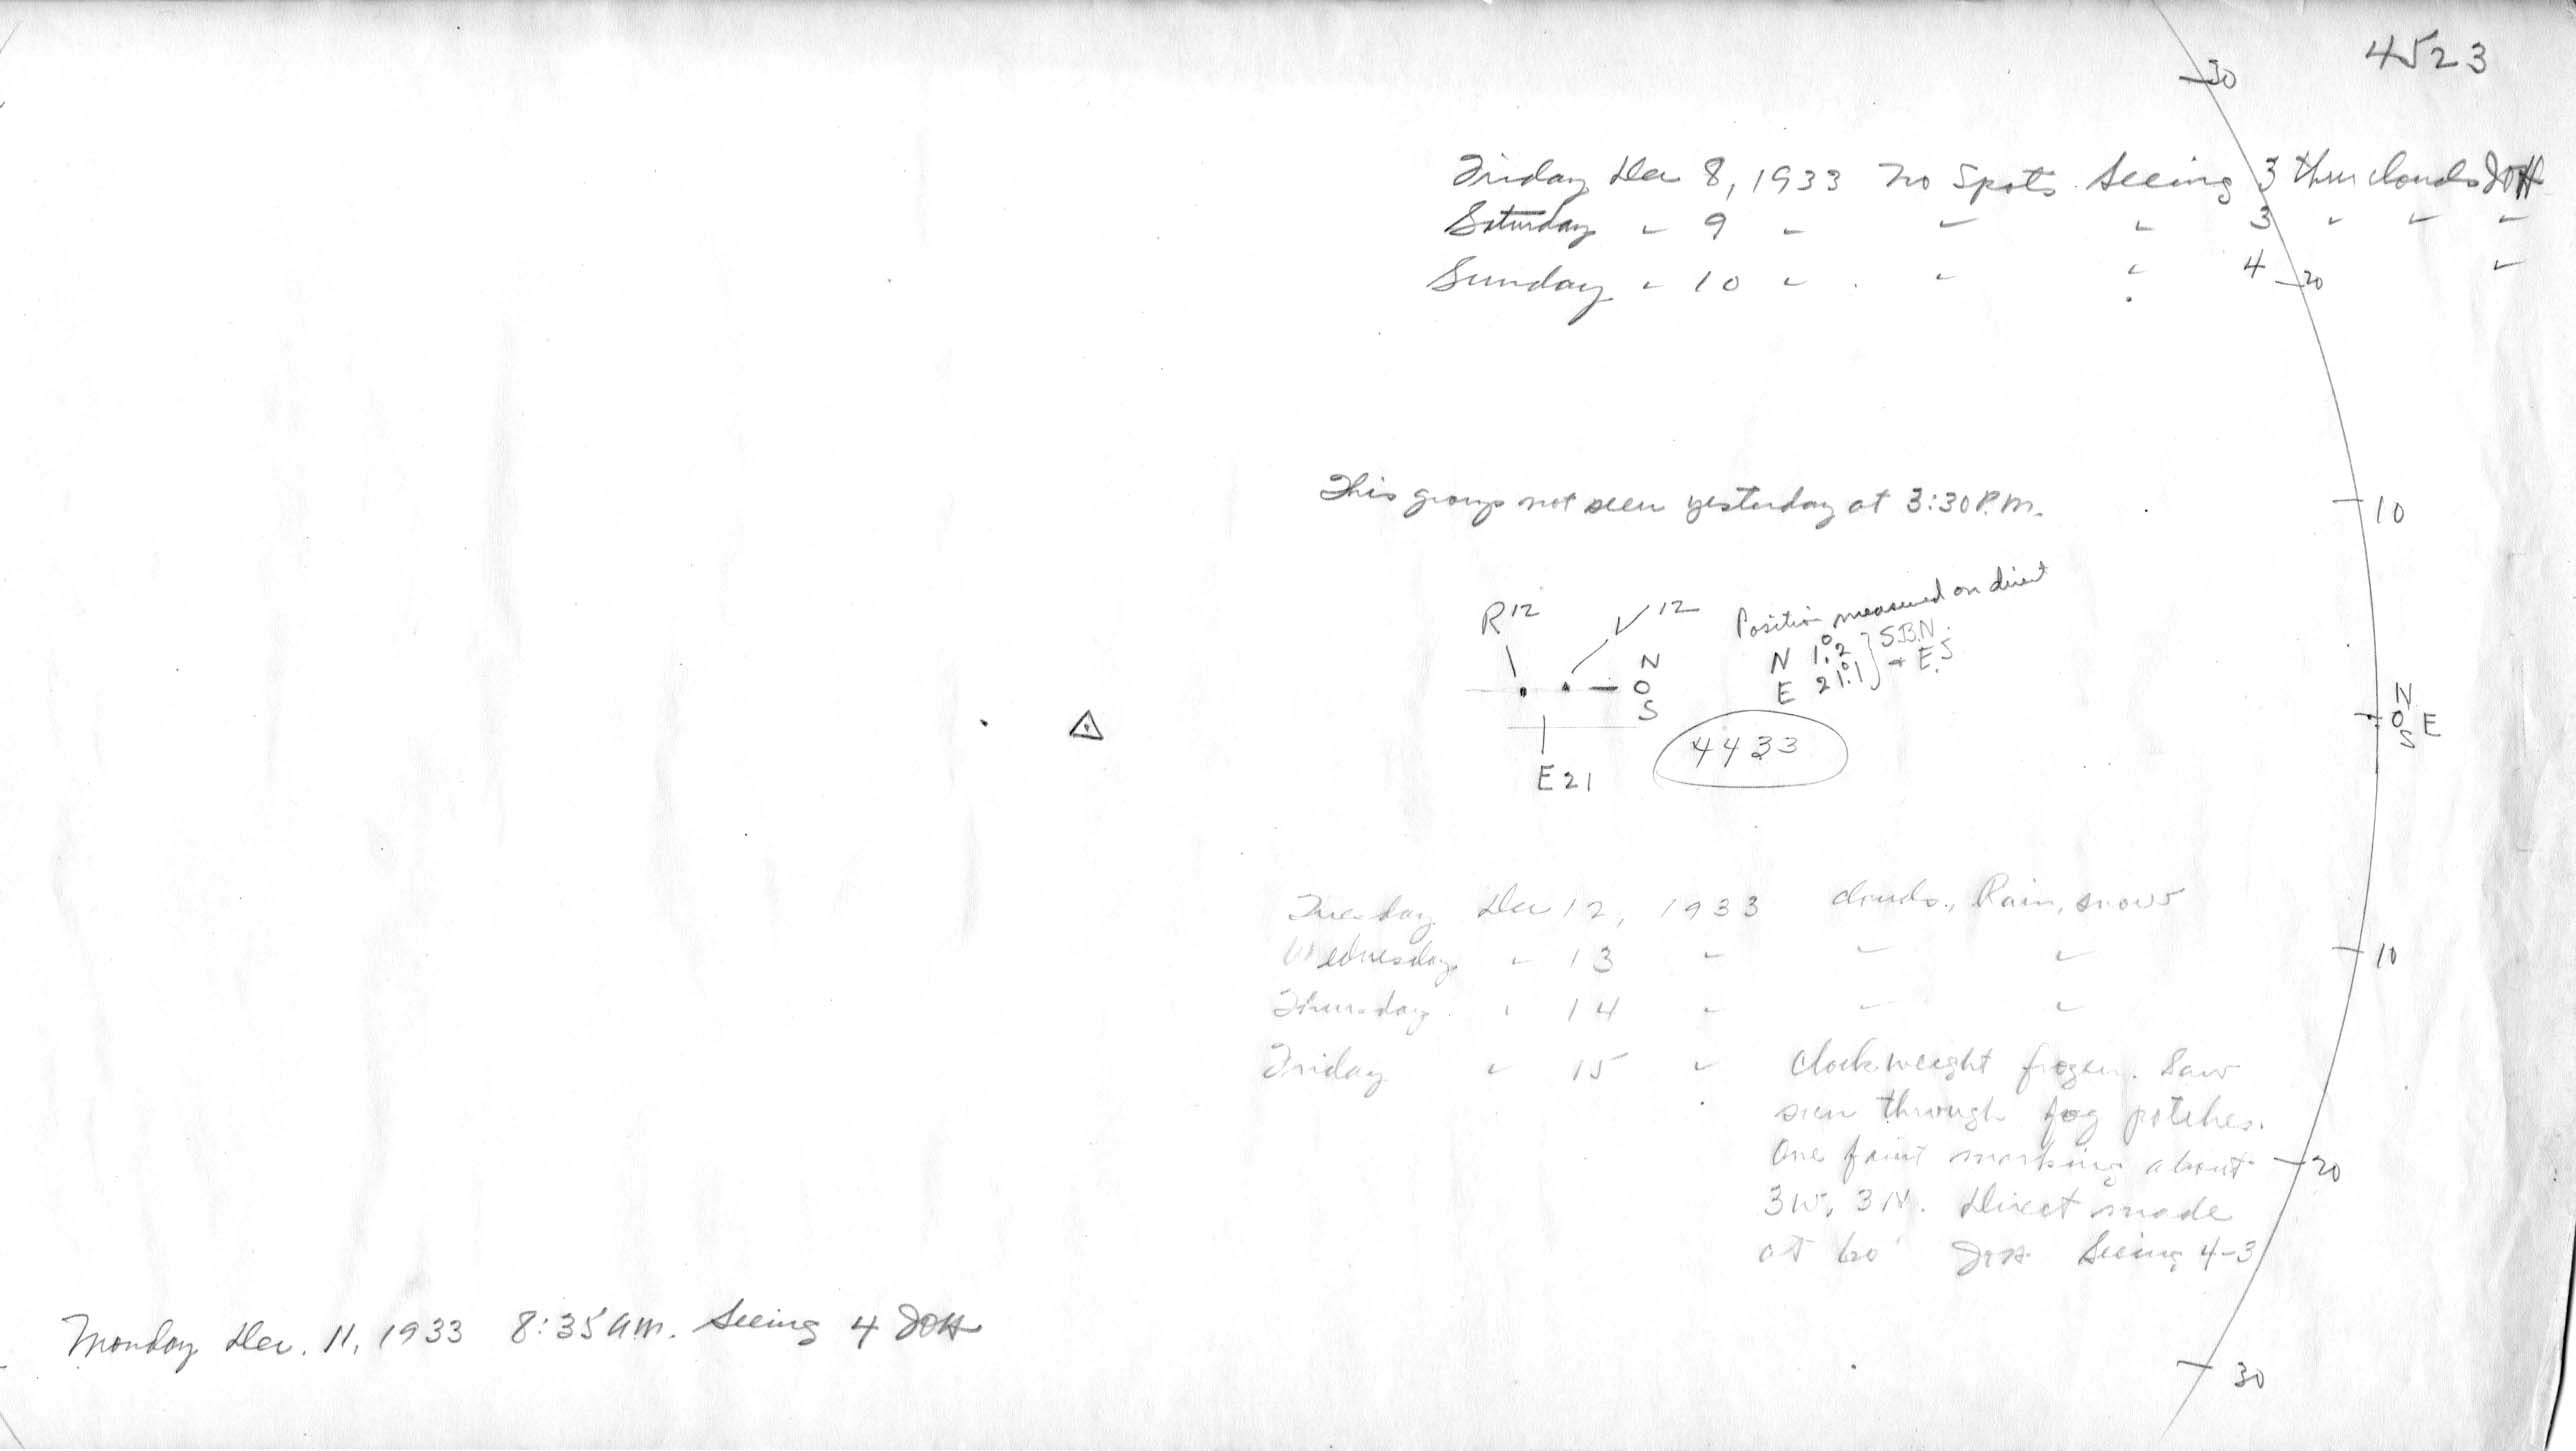 4523
30
Friday Dec 8, 1933 No Spots Seeing 3 thru clouds JOH
Saturday " 9 " " " 3 " " "
Sunday " 10 " " " 4 "
20
This group not seen yesterday at 3:30 P.M.
10
R12 V12
Position measured on direct
N 1°.2 } S.B.N.
E 21°.1 } + E.S
N
O
S
E21
4433
N
O E
S
Tuesday Dec 12, 1933 clouds, Rain, snow
Wednesday " 13 " " "
10
Thursday " 14 " " "
Friday " 15 " Clock weight frozen. Saw
sun through fog patches.
One faint marking about
20
3W, 3N. Direct made
at 60' JOH Seeing 4-3
Monday Dec. 11, 1933 8:35 am. Seeing 4 JOH
30